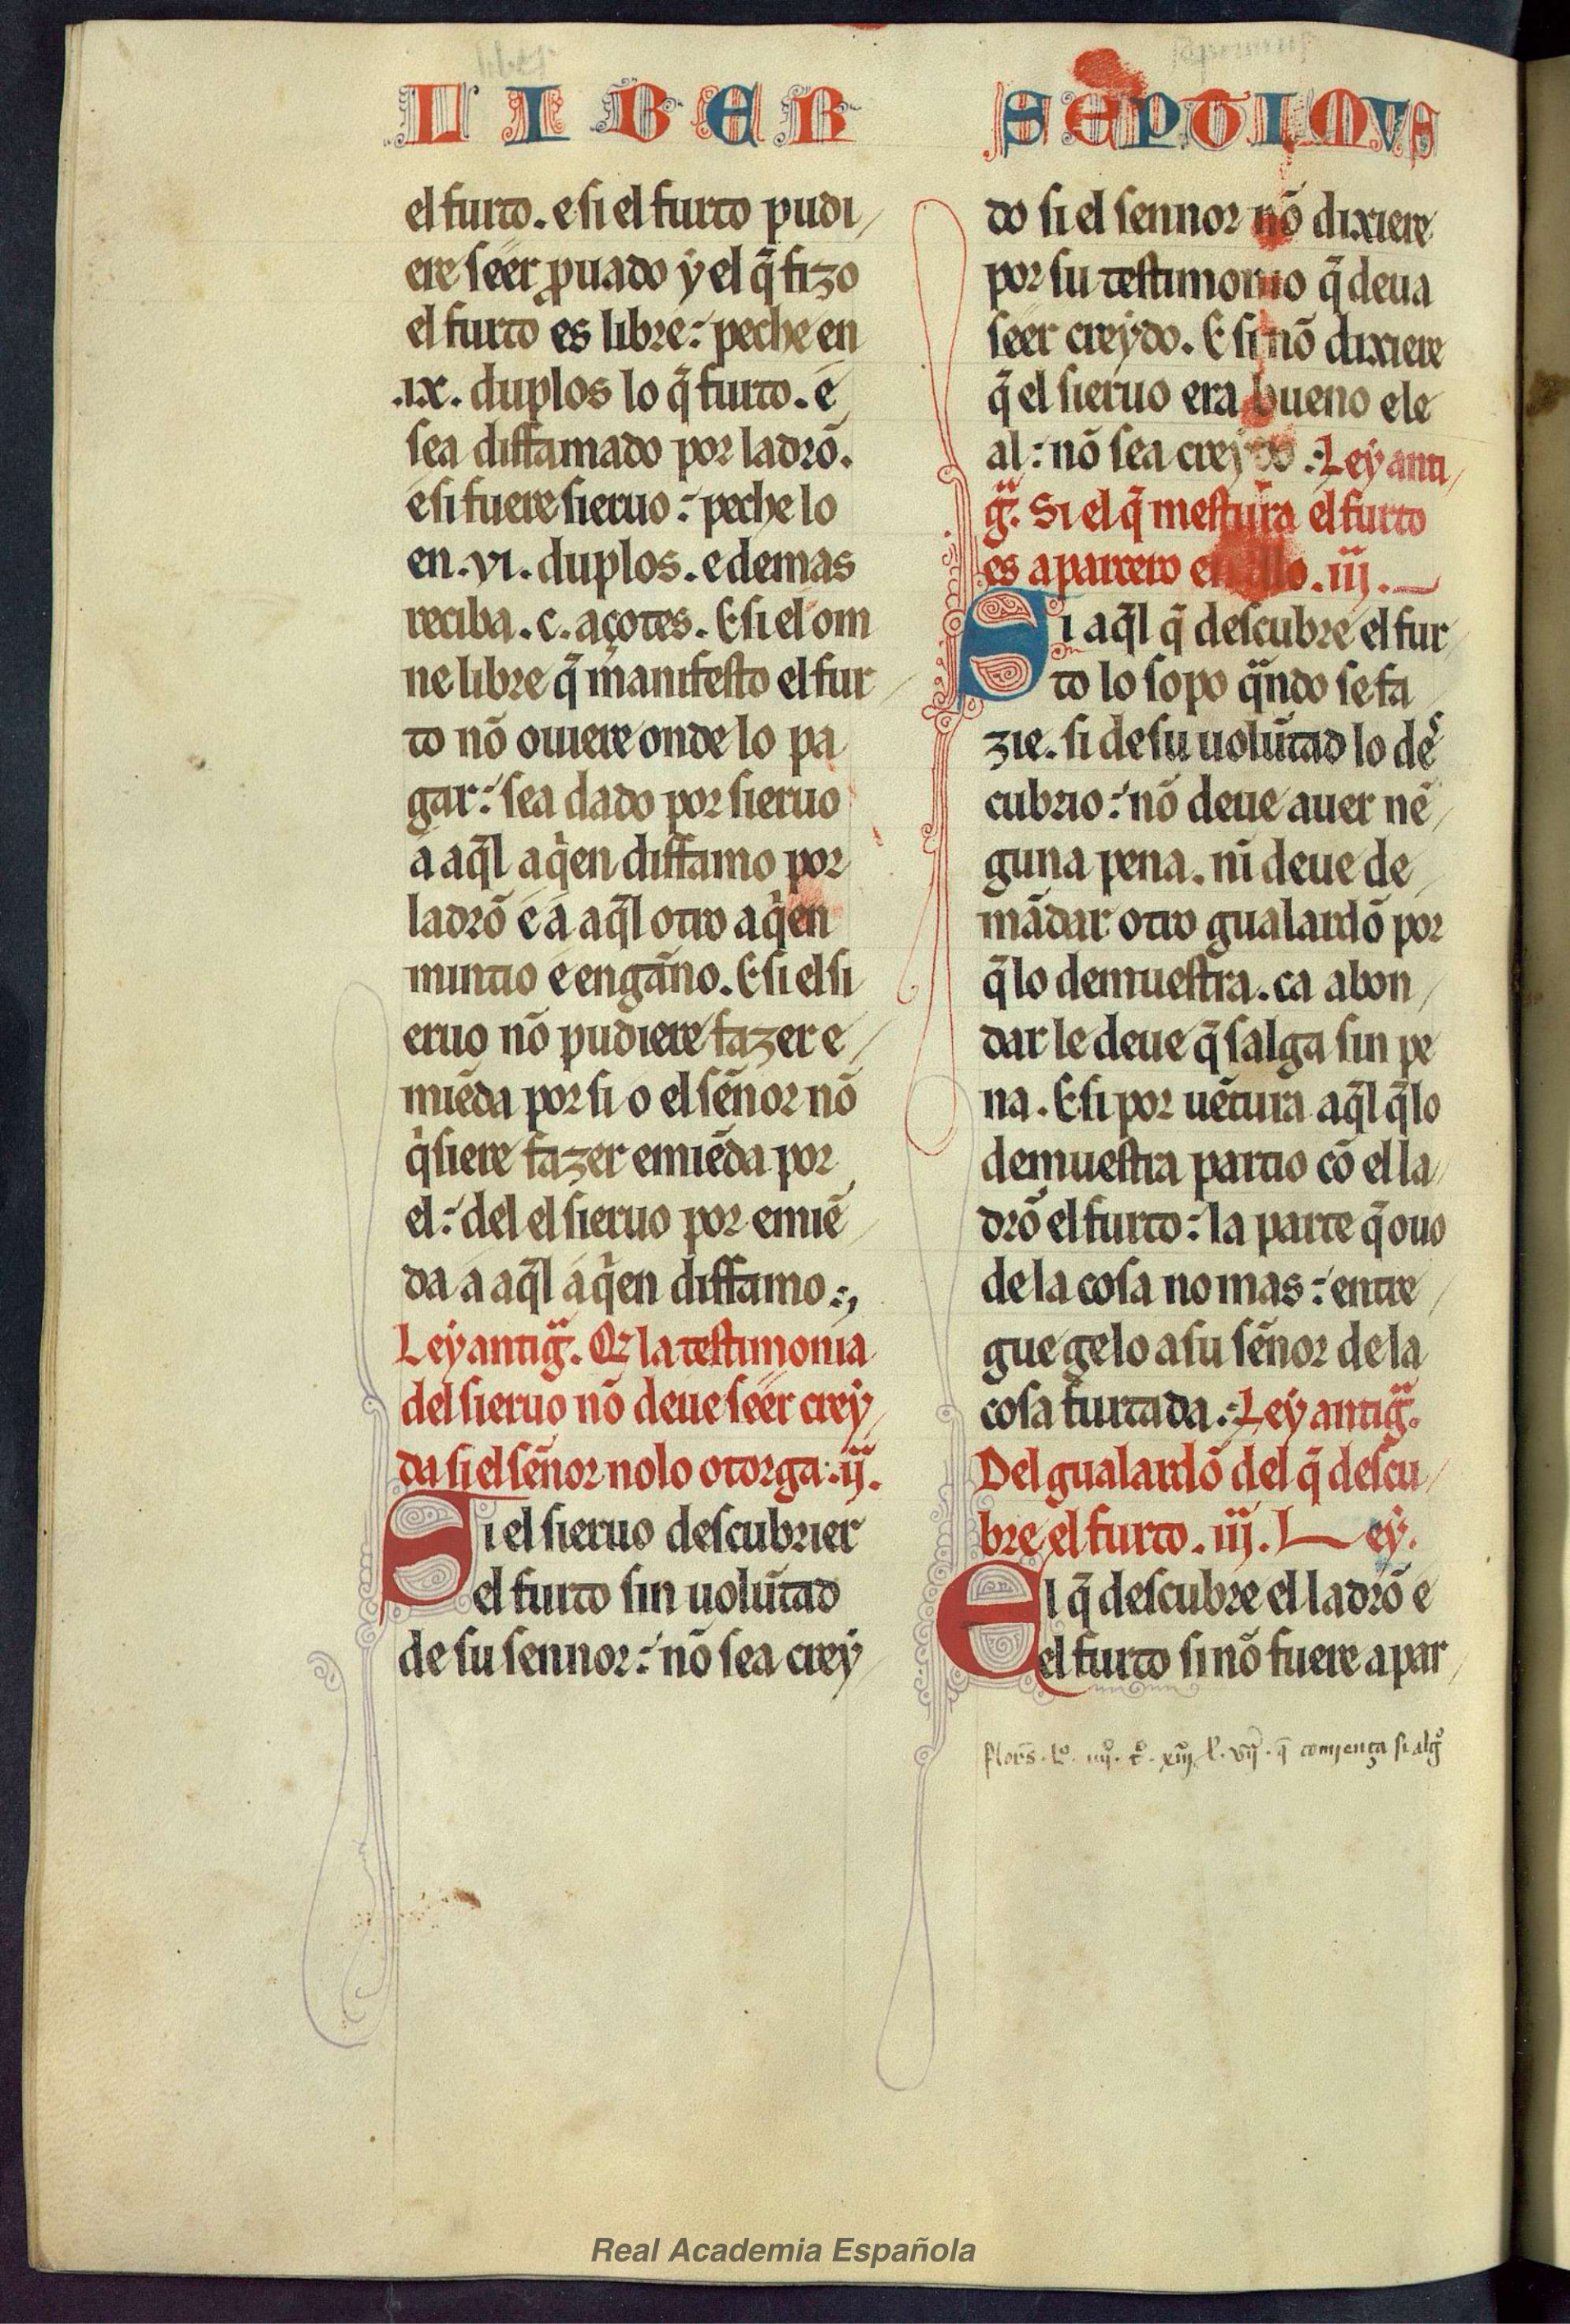 liber
LIBER
el furto. e si el furto pudi
ere seer ꝓuado y el q̃ fizo
el furto es libre: peche en
.ix. duplos lo q̃ furto. e
sea diffamado por ladrõ.
e si fuere sieruo: peche lo
en .vi. duplos. e demas
reciba .c. açotes. E si el om
ne libre q̃ manifesto el fur
to nõ ouiere onde lo pa
gar: sea dado por sieruo
a aq̃l a qͥen diffamo por
ladrõ e a aq̃l otro a qͥen
mintio e engãno. E si el si
eruo nõ pudiere fazer e
miẽda por si o el sẽnor nõ
qͥsiere fazer emiẽda por
el: del el sieruo por emiẽ
da a aq̃l a qͥen diffamo:,
Ley antigᷓ. Qͥ la testimonia
del sieruo nõ deue seer crey
da si el sẽnor no lo otorga: .ij.
Si el sieruo descubrier
el furto sin uolũtad
de su sennor: nõ sea crey
septimus
SEPTIMVS
do si el sennor nõ dixiere
por su testimonio q̃ deua
seer creydo. E si nõ dixiere
q̃ el sieruo era bueno e le
al: nõ sea creydo: Ley anti
gᷓ. Si el q̃ mestura el furto
es aparcero en ello .iij.
Si aq̃l q̃ descubre el fur
to lo sopo qᷓndo se fa
zie. si de su uolũtad lo deˢ
cubrio: nõ deue auer nẽ
guna pena. nĩ deue de
mãdar otro gualardõ por
q̃ lo demuestra. ca abon
dar le deue q̃ salga sin pe
na. E si por uẽtura aq̃l q̃ lo
demuestra partio cõ el la
drõ el furto: la parte q̃ ouo
de la cosa no mas: entre
gue gelo a su sẽnor de la
cosa furtada: Ley antigᷓ.
Del gualardõ del q̃ descu
bre el furto .iiij. Ley.
El q̃ descubre el ladrõ e
el furto si nõ fuere apar
flors̃. lᵒ. iiijᵒ. tᵒ. xiij l. vij. q̃ comjença si algᵒ
Real Academia Española